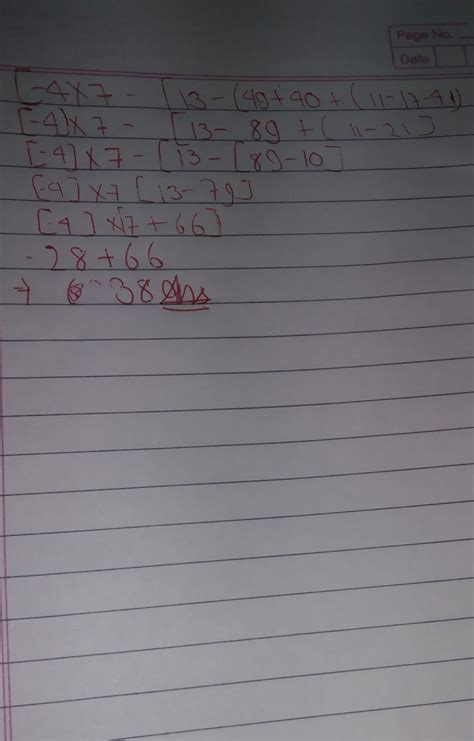 Page No.
Date
[-4×7 - [13-(49+40+(11-17-4)
[-4)×7 - [13- 89 +(11-21]
[-4]×7-[13-[89-10]
[-4]×7[13-79]
[-4]×[7+66]
-28+66
→ 38 Ans